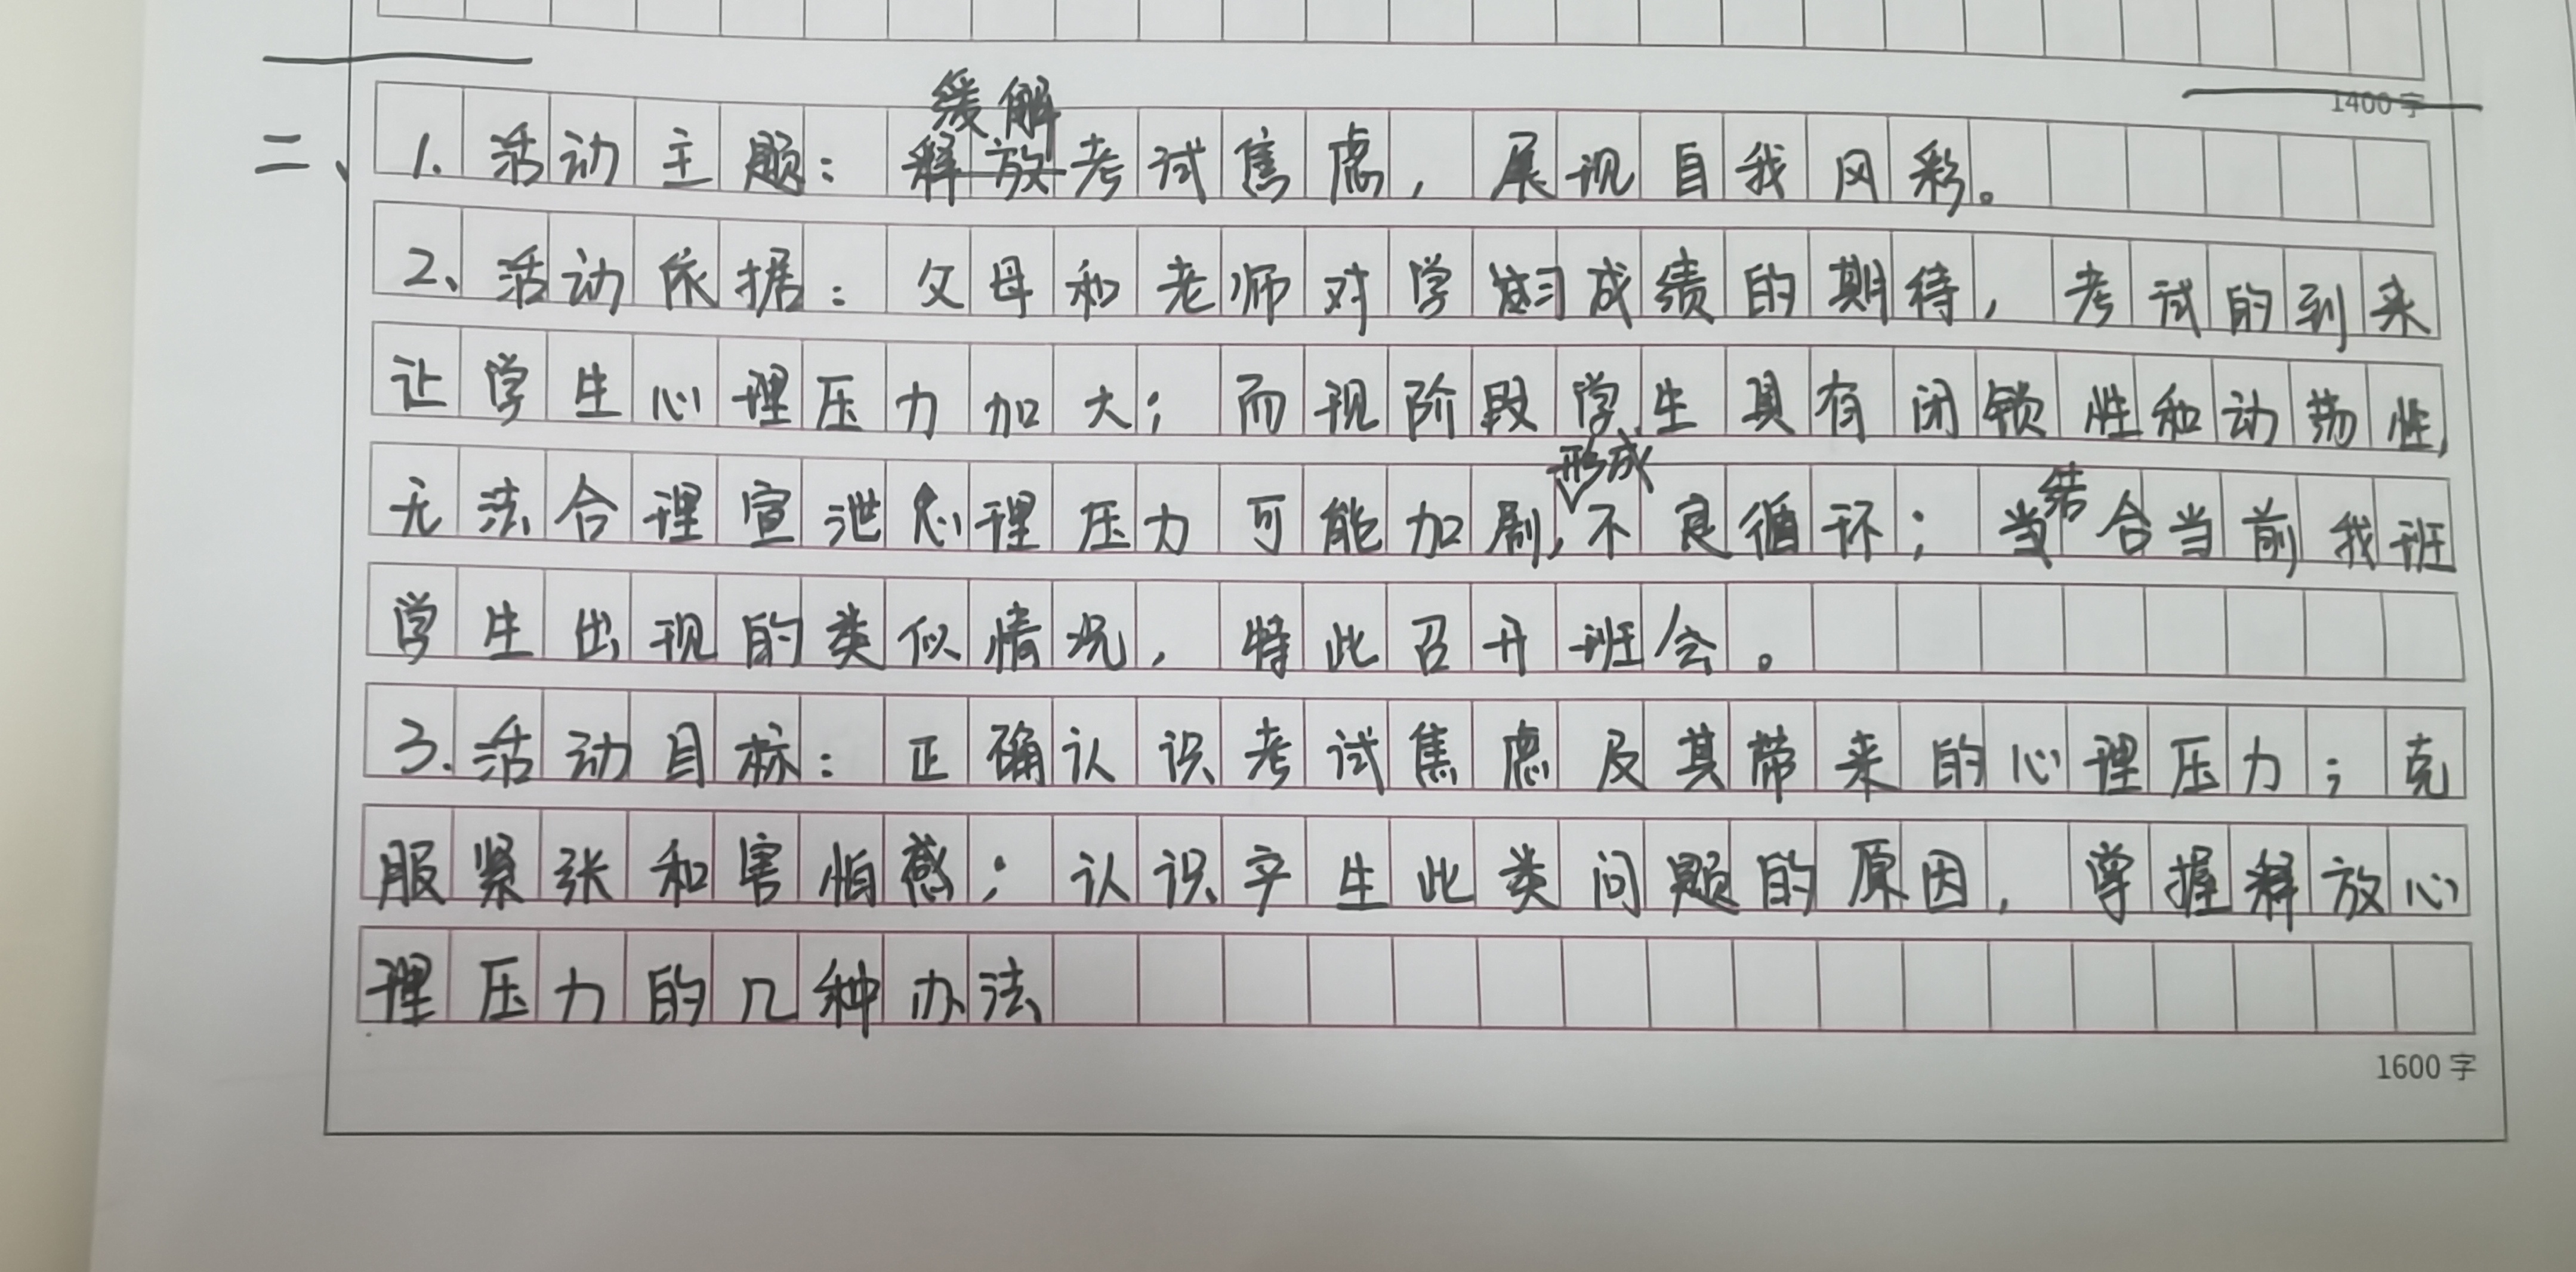 1400字
二、1.活动主题：缓解考试焦虑，展现自我风彩。
2、活动依据：父母和老师对学习成绩的期待，考试的到来
让学生心理压力加大；而现阶段学生具有闭锁性和动荡性，
无法合理宣泄心理压力可能加剧，形成不良循环；结合当前我班
学生出现的类似情况，特此召开班会。
3.活动目标：正确认识考试焦虑及其带来的心理压力；克
服紧张和害怕感；认识产生此类问题的原因，掌握释放心
理压力的几种办法
1600字